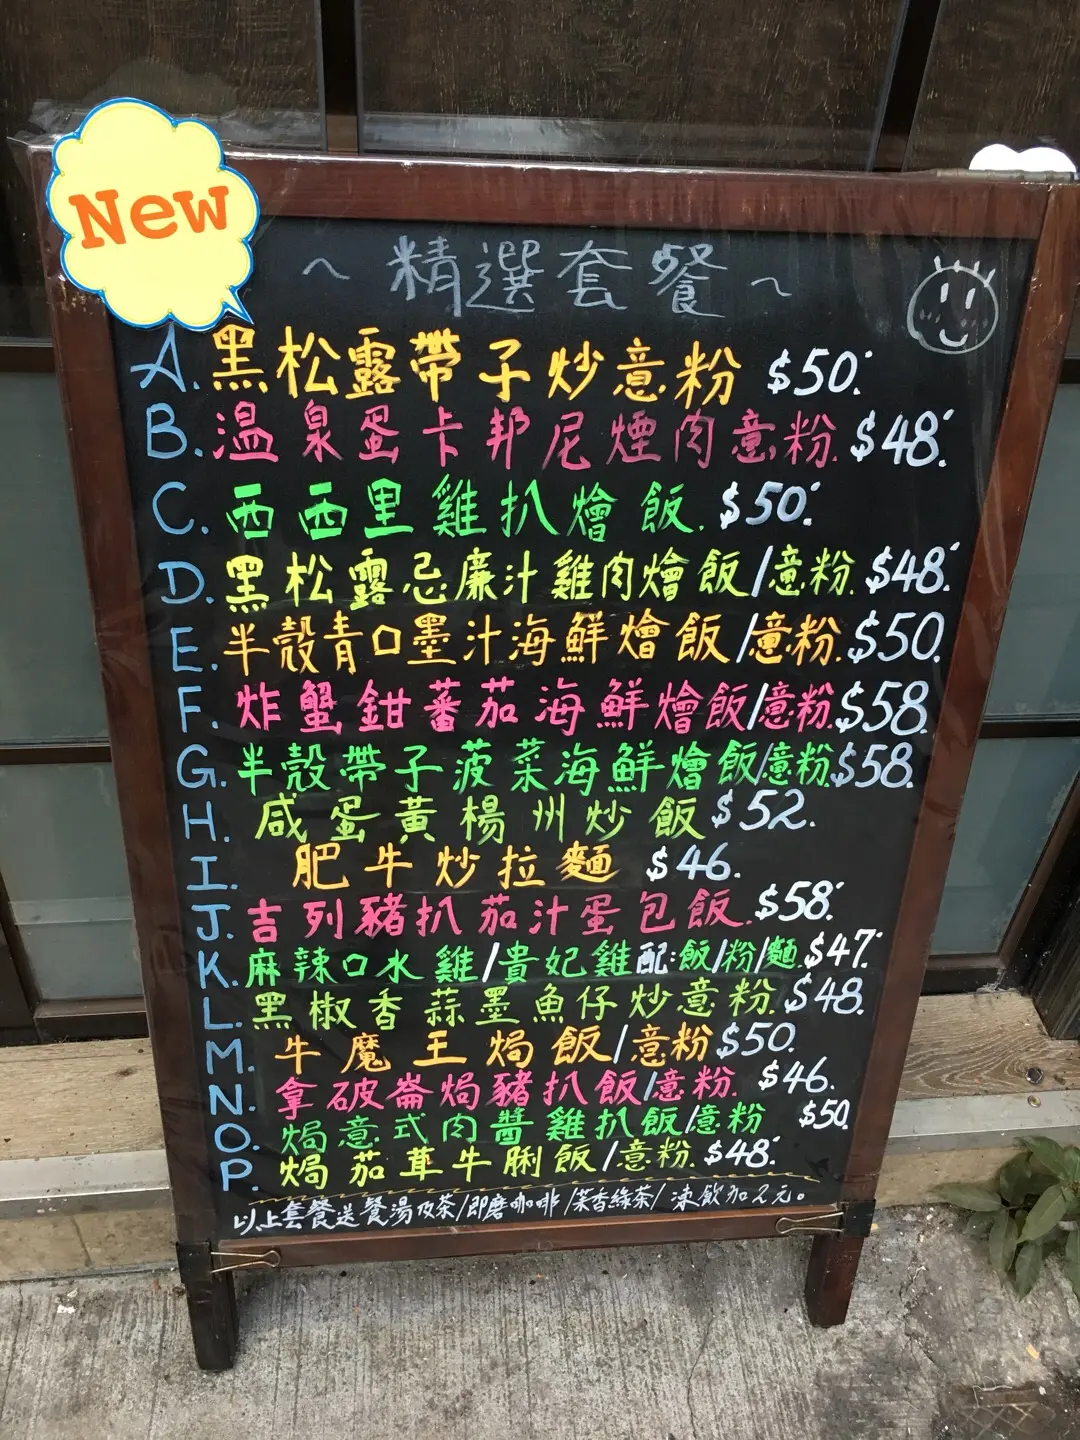 New
~ 精選套餐 ~
A. 黑松露帶子炒意粉 $50.
B. 溫泉蛋卡邦尼煙肉意粉. $48.
C. 西西里雞扒燴飯. $50.
D. 黑松露忌廉汁雞肉燴飯/意粉. $48.
E. 半殼青口墨汁海鮮燴飯/意粉. $50.
F. 炸蟹鉗蕃茄海鮮燴飯/意粉. $58.
G. 半殼帶子菠菜海鮮燴飯/意粉 $58.
H. 咸蛋黃楊州炒飯 $52.
I. 肥牛炒拉麵 $46.
J. 吉列豬扒茄汁蛋包飯. $58.
K. 麻辣口水雞/貴妃雞配:飯/粉/麵. $47.
L. 黑椒香蒜墨魚仔炒意粉. $48.
M. 牛魔王焗飯/意粉 $50.
N. 拿破崙焗豬扒飯/意粉. $46.
O. 焗意式肉醬雞扒飯/意粉 $50.
P. 焗茄茸牛脷飯/意粉. $48.
以上套餐送餐湯及茶/即磨咖啡/茉香綠茶/凍飲加2元。